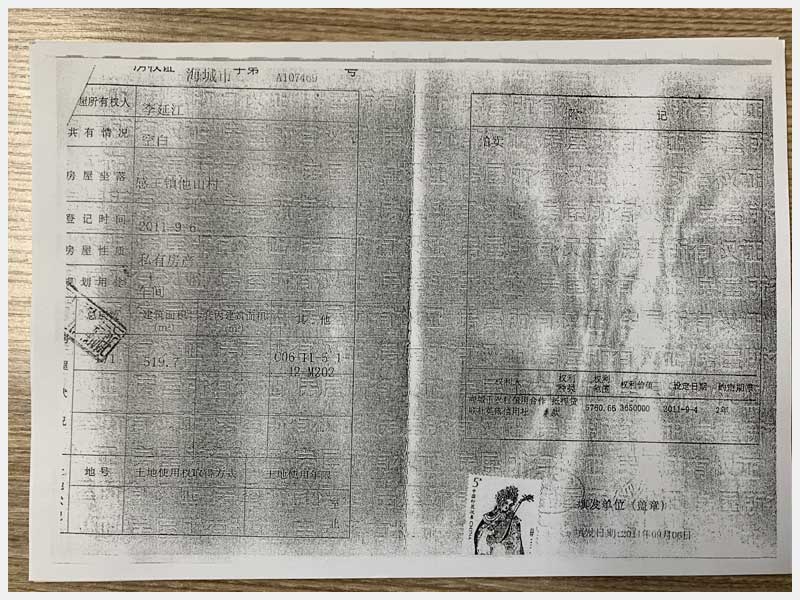 房权证 海城市 字第 A107469 号
屋所有权人 李延江
共有情况 空白
房屋坐落 感王镇他山村
登记时间 2011-9-6
房屋性质 私有房产
规划用途 车间
建筑面积 套内建筑面积 其他
(m²)
519.7 C06-11-5-1
12-M202
地号 土地使用权取得方式 土地使用年限
至
止
记
权利人 权利 权利 权利价值 设定日期 约定期限
种类 范围
信用合作 抵押贷 5760.66 3650000 2011-9-4 2年
款
填发单位（盖章）
填发日期:2011年09月06日